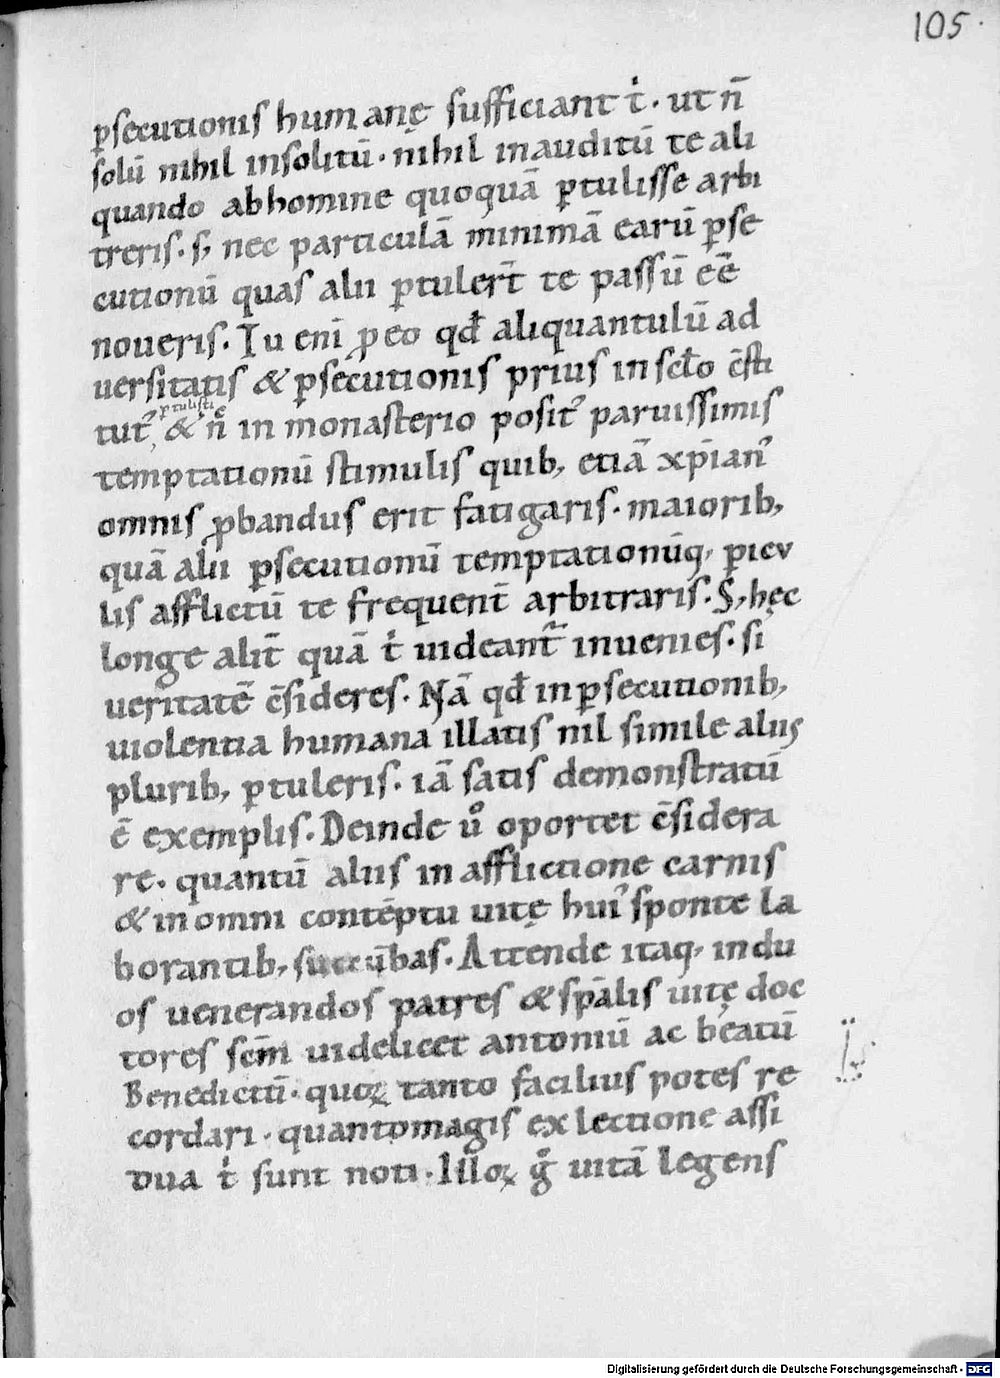 105.
p̲secutionis humanę sufficiant t᷏. ut n̄
solū nihil insolitū. nihil inauditū te ali
quando abhomine quoquā p̲tulisse arbi
treris. s; nec particulā minimā earū p̲se
cutionū quas alii p̲tulert̄ te passū eē
noueris. Tu eni̅ ꝓ eo qđ aliquantulū ad
uersitatis & p̲secutionis prius in sclo c̄sti
p̲tulisti
tut᷒, & n̄c in monasterio posit᷒ paruissimis
temptationū stimulis quib; etiā xp̄ian᷒
omnis ꝓbandus erit fatigaris. maiorib;
quā alii p̲secutionū temptationūq; picu
lis afflictū te frequent̄ arbitraris. S; hęc
longe alit̄ quā t᷏ uideant᷑ inuenies. si
ueritatē c̄sideres. Nā qđ in p̲secutionib;
uiolentia humana illatis nil simile aliis
plurib; p̲tuleris. iā satis demonstratū
ē exemplis. Deinde uͦ oportet c̄sidera
re. quantū aliis in afflictione carnis
& in omni contēptu uitę hui᷒ sponte la
borantib; succūbas. Attende itaq; in du
os uenerandos patres & sp̄alis uitę doc
tores sc̄m uidelicet antoniū ac beatū
Benedictū. quoꝝ tanto facilius potes re
cordari. quantomagis ex lectione assi
dua t᷏ sunt noti. Illoꝝ gͦ uitā legens
Digitalisierung gefördert durch die Deutsche Forschungsgemeinschaft - DFG